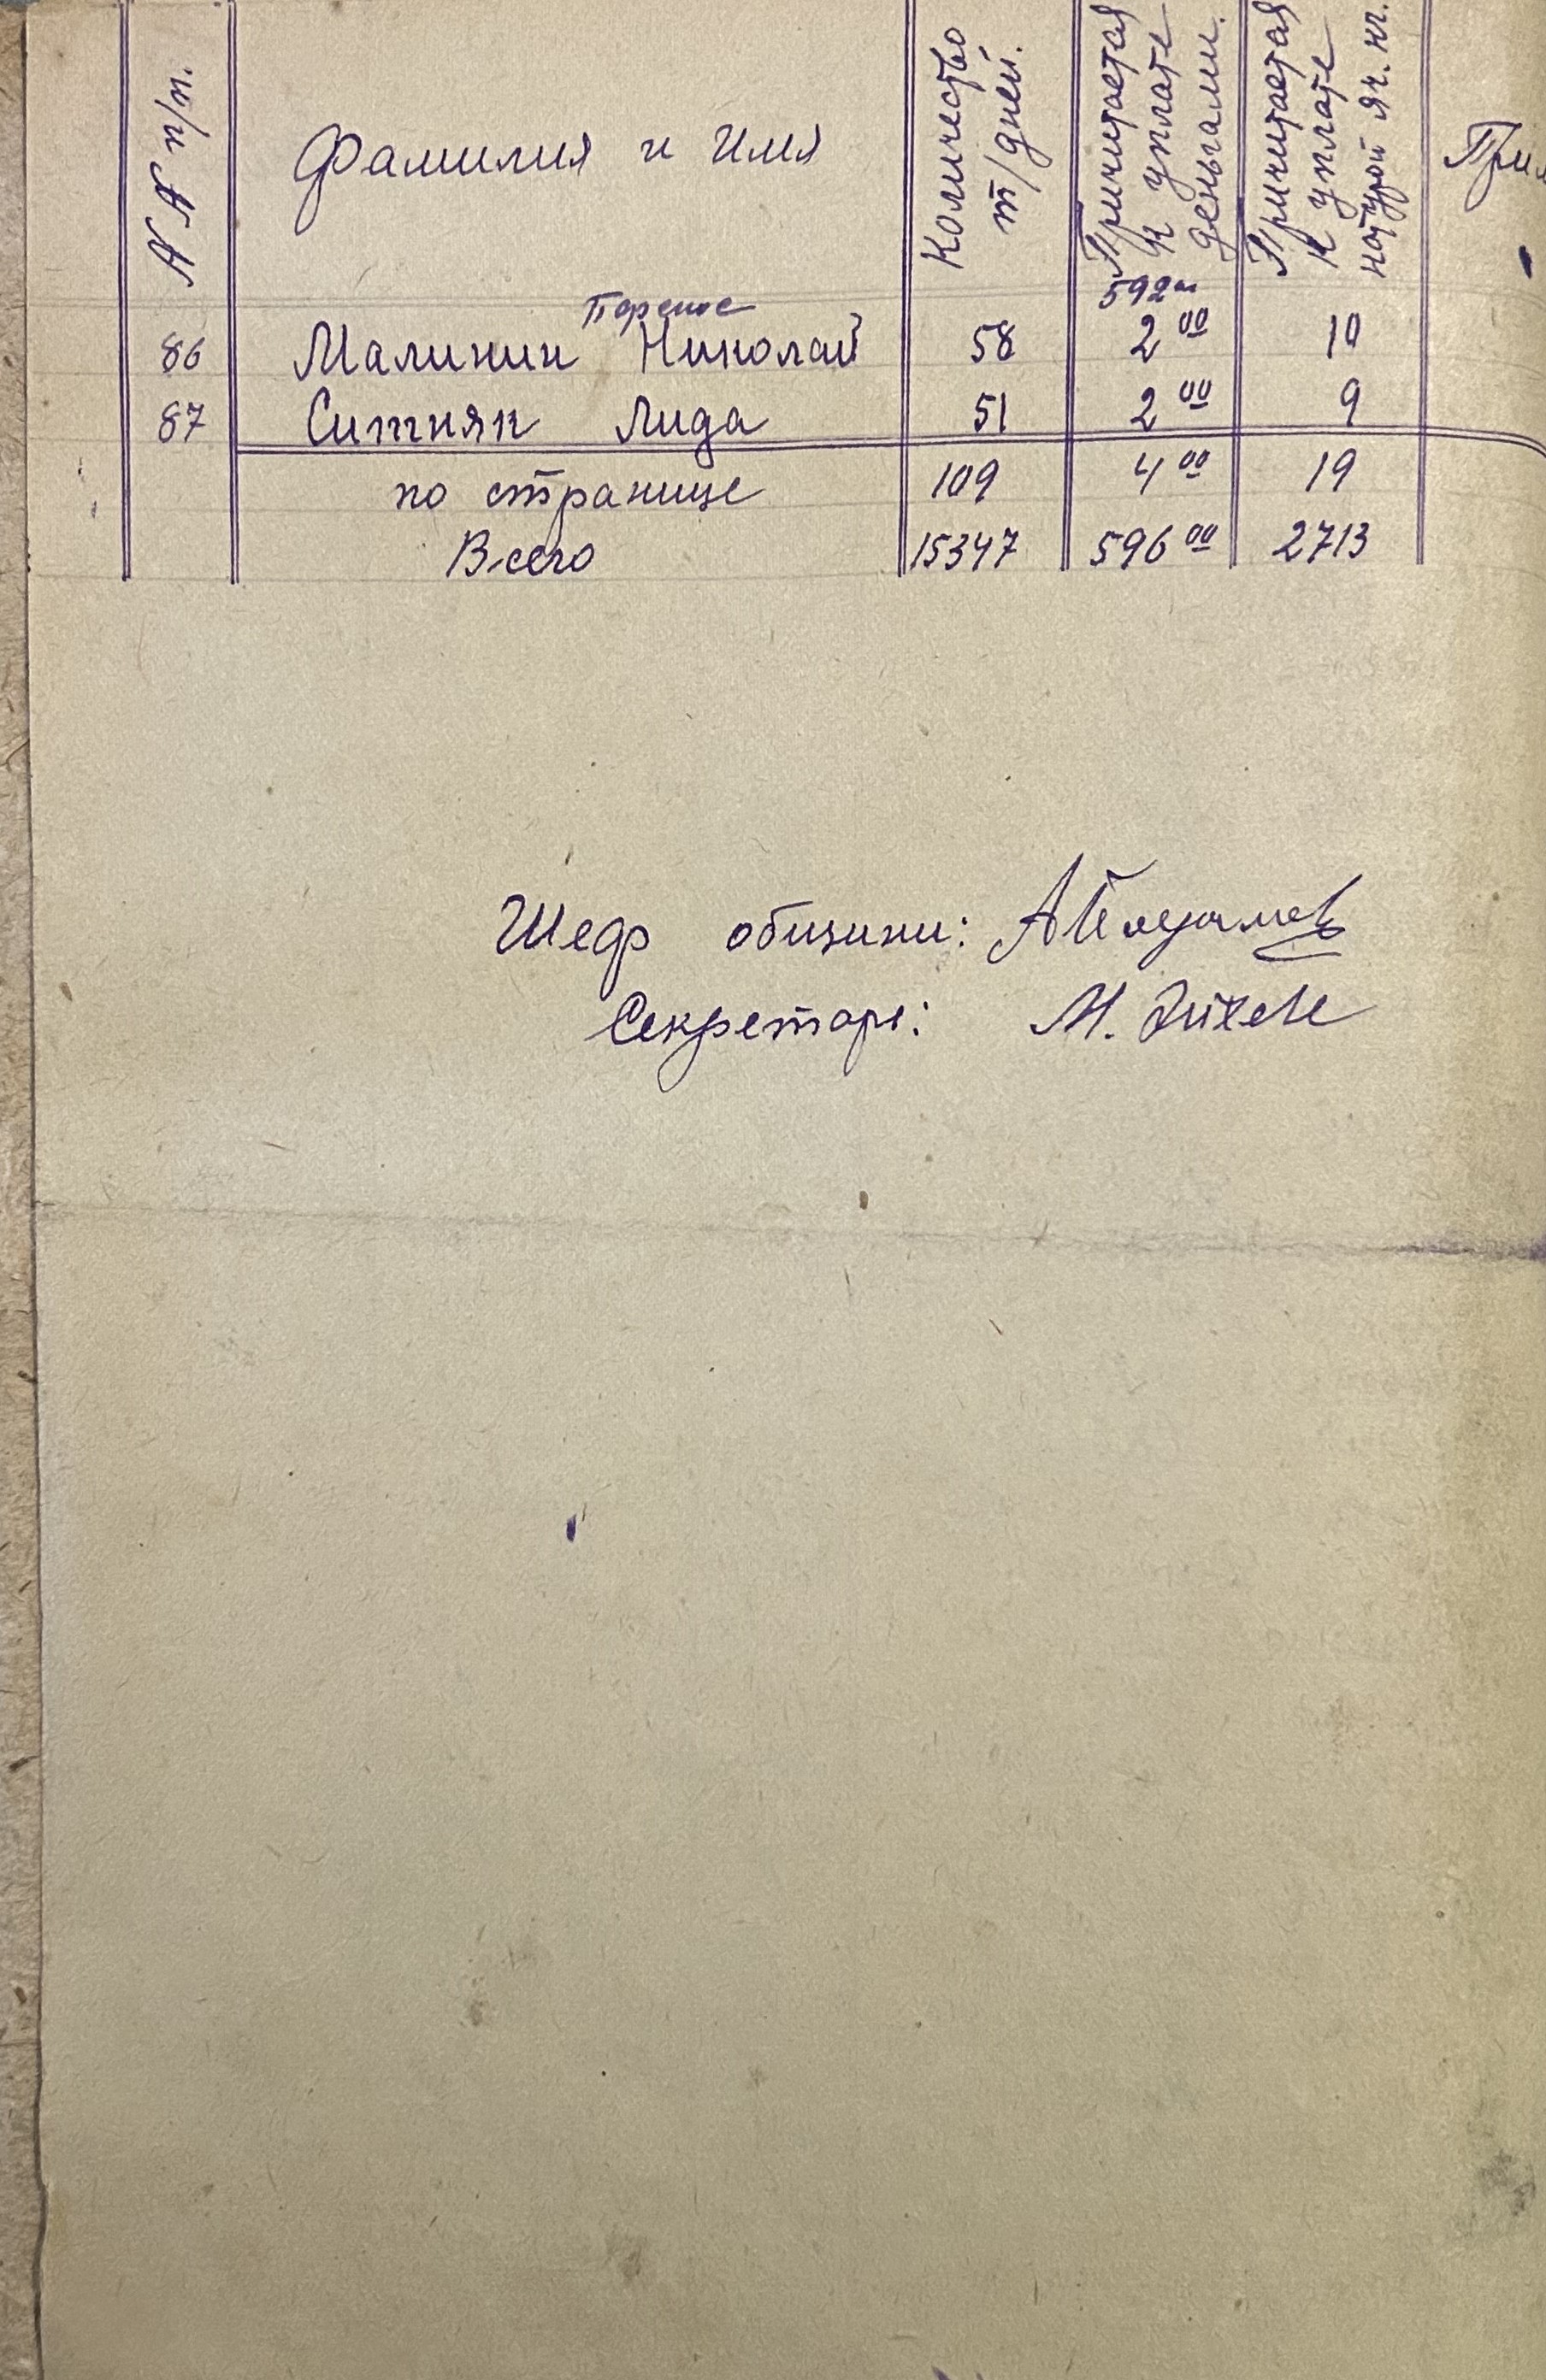 №№ п/п. Фамилия и Имя Количество т/дней. Причитается к уплате деньгами. Причитается к уплате натурой яч. кг. Прим
592
86 Малинин Николай 58 2 00 10
87 Ситняк Лида 51 2 00 9
по странице 109 4 00 19
Всего 15347 596 00 2713
Шеф общини:
Секретарь: М.